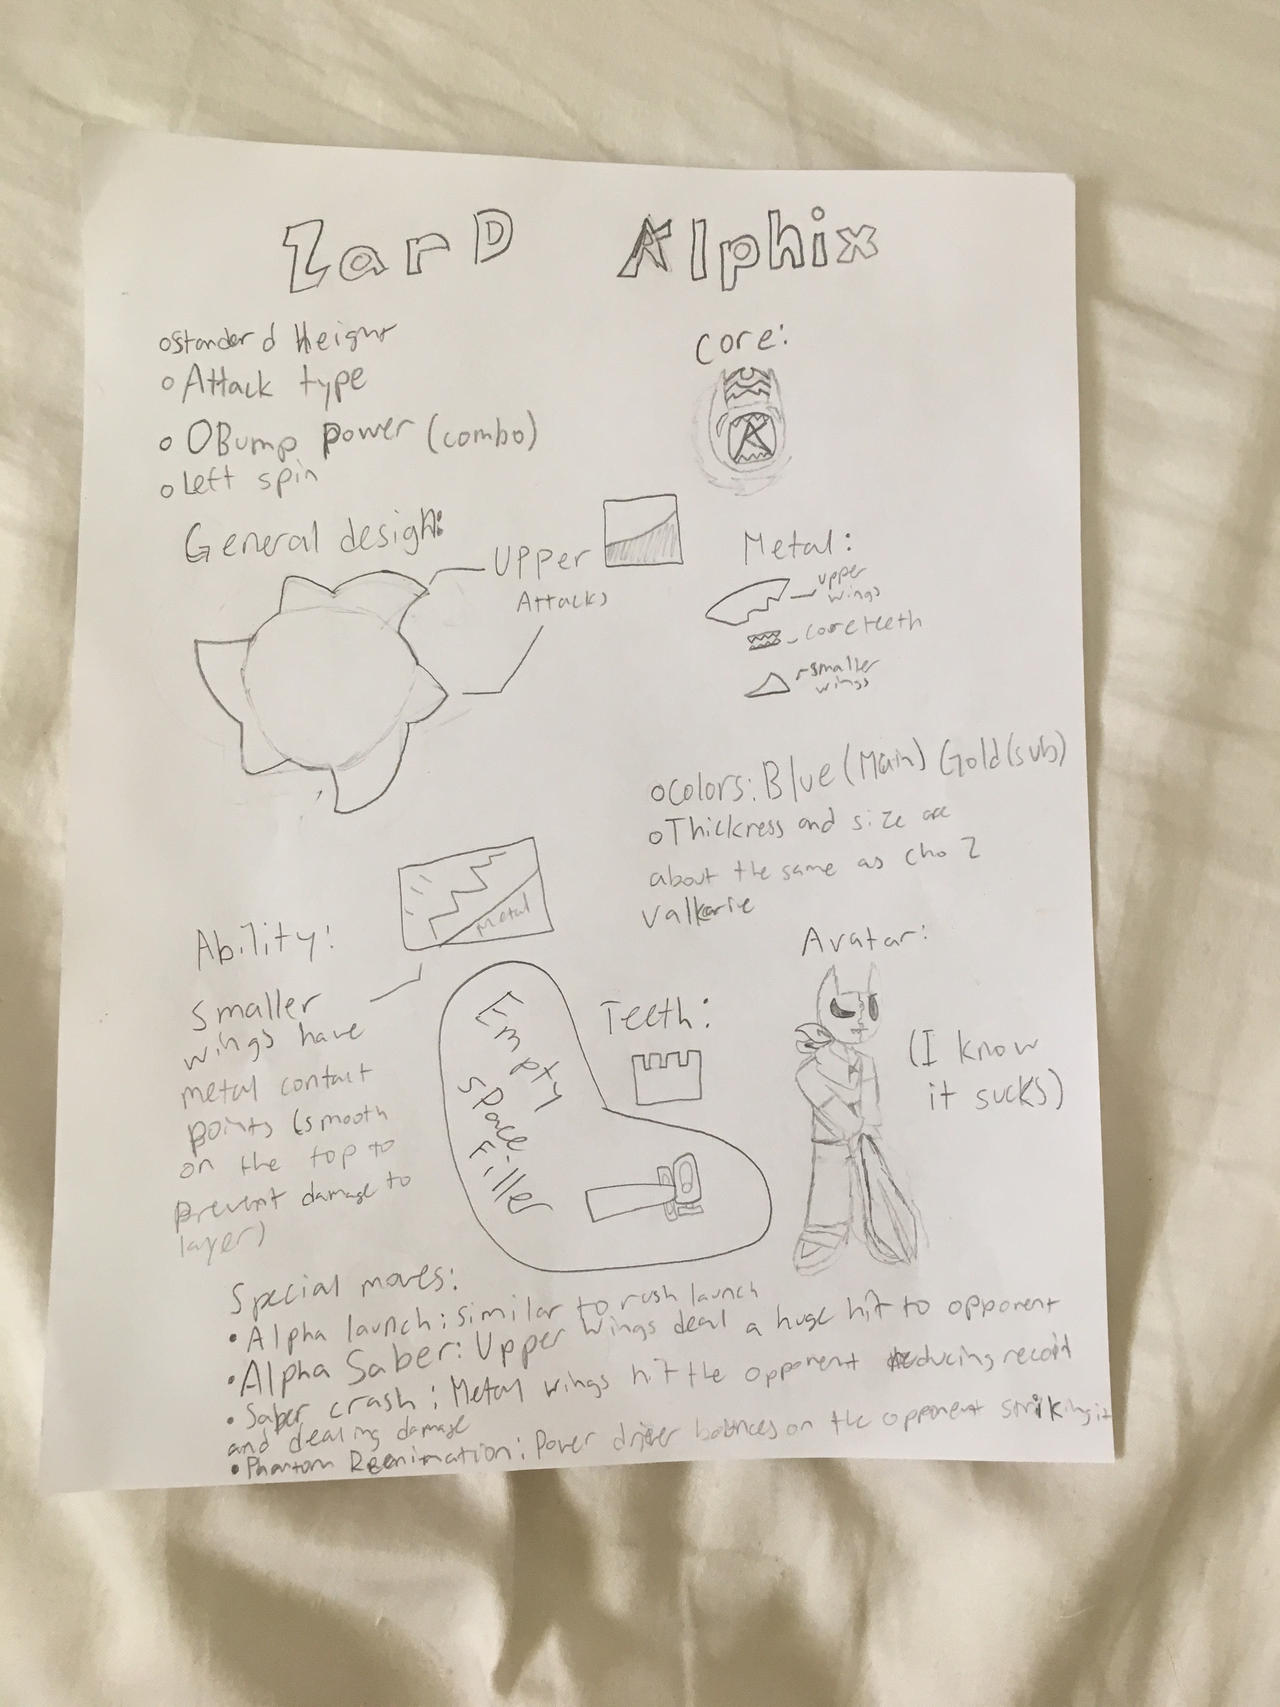 ZarD Alphix
Standerd Height
Attack type
0Bump power (combo)
Left spin
Core:
A
General design:
Upper
Attacks
Metal:
upper
wings
core teeth
smaller
wings
Colors: Blue (Main) Gold (sub)
Thickness and size are
about the same as Cho Z
Valkarie
Metal
Ability:
Smaller
wings have
metal contact
points (smooth
on the top to
prevent damage to
layer)
Empty
space
Filler
Teeth:
Avatar:
(I know
it sucks)
Special moves:
• Alpha launch: similar to rush launch
• Alpha Saber: Upper wings deal a huge hit to opponent
• Saber crash: Metal wings hit the opponent reducing recoil
and dealing damage
• Phantom Reenimation: Power driver bounces on the opponent striking it